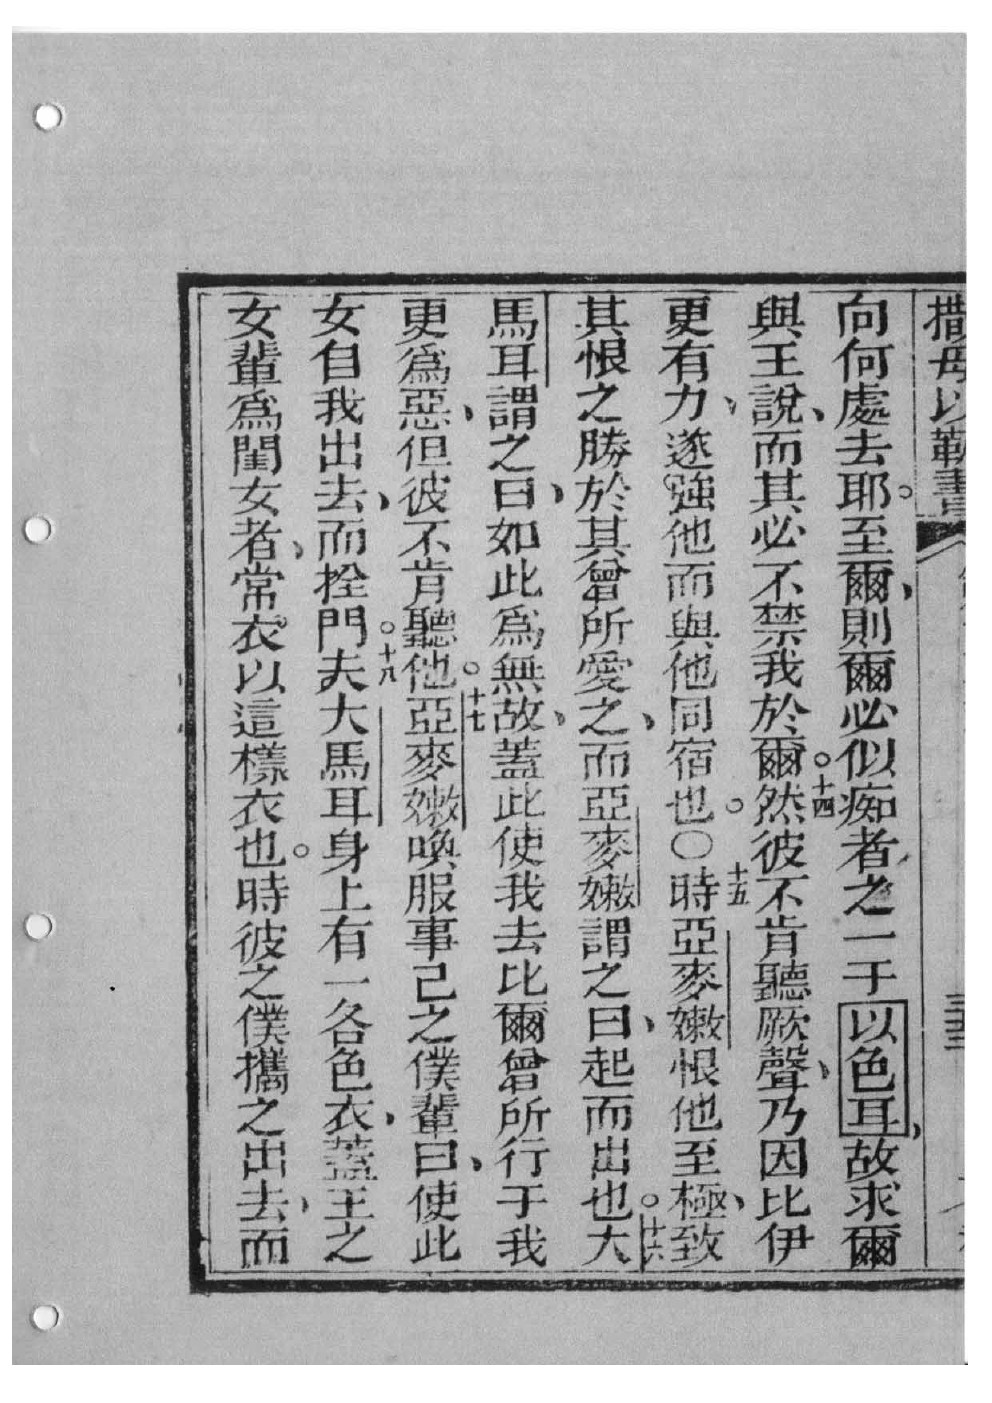 撒母以勒書
向何處去耶。至爾、則爾必似痴者之一于以色耳、故求爾
與王說、而其必不禁我於爾。十四然彼不肯聽厥聲、乃因比伊
更有力、遂強他而與他同宿也。○十五時亞麥嫩恨他至極、致
其恨之勝於其曾所愛之、而亞麥嫩謂之曰、起而出也。十六大
馬耳謂之曰、如此為無故、蓋此使我去比爾曾所行于我
更為惡、但彼不肯聽他。十七亞麥嫩喚服事己之僕輩曰、使此
女自我出去、而拴門。十八夫大馬耳身上有一各色衣、蓋王之
女輩為閨女者、常衣以這樣衣也。時彼之僕攜之出去、而